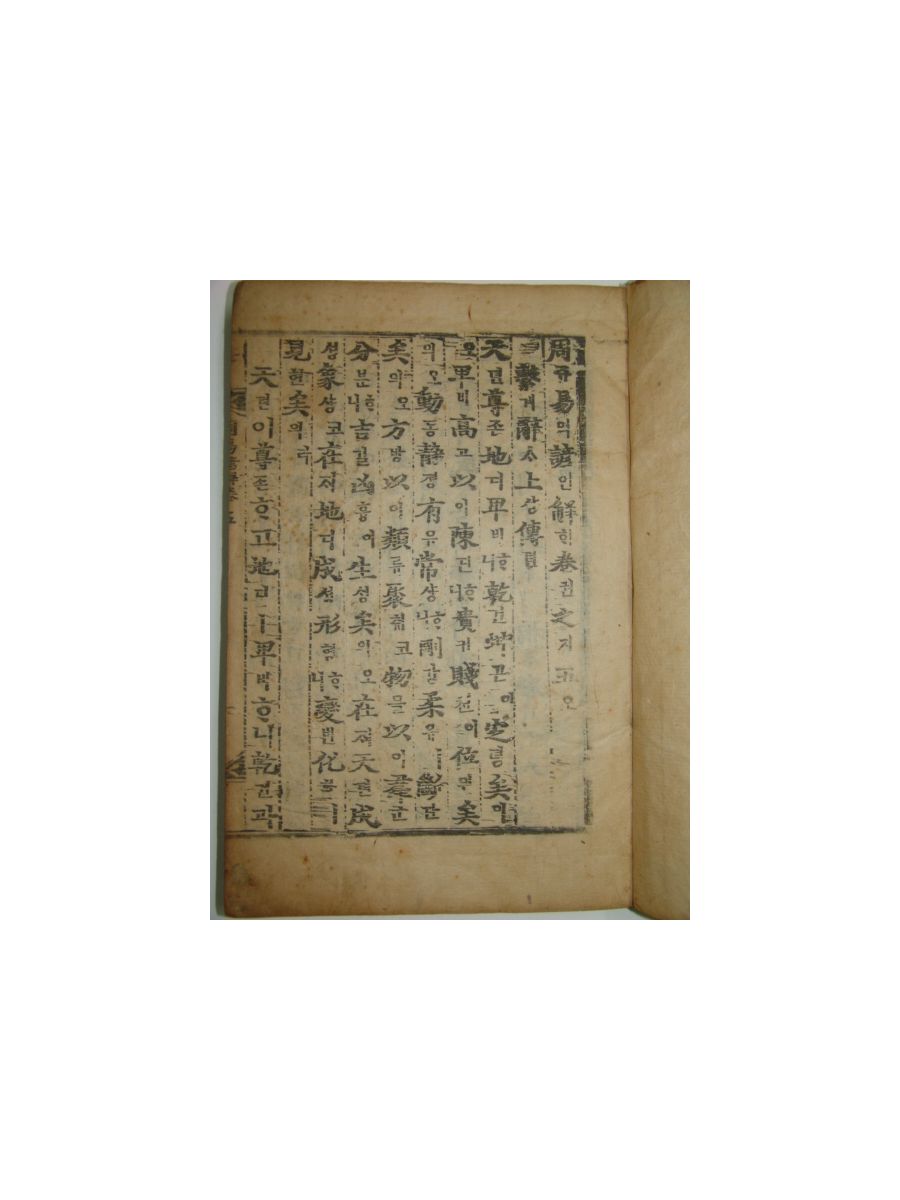 周쥬易역諺언解ᄒᆡ卷권之지五오
繫계辭ᄉᆞ上샹傳뎐
天텬尊존地디卑비ᄒᆞ니乾건坤곤이定뎡矣의
오卑비高고以이陳딘ᄒᆞ니貴귀賤쳔이位위矣
의오動동靜졍有유常샹ᄒᆞ니剛강柔유ㅣ斷단
矣의오方방以이類류聚취코物믈以이羣군
分분ᄒᆞ니吉길凶흉이生ᄉᆡᆼ矣의오在ᄌᆡ天텬成
셩象샹코在ᄌᆡ地디成셩形형ᄒᆞ니變변化화ㅣ
見현矣의라
天텬이尊존ᄒᆞ고地디ㅣ卑비ᄒᆞ니乾건과